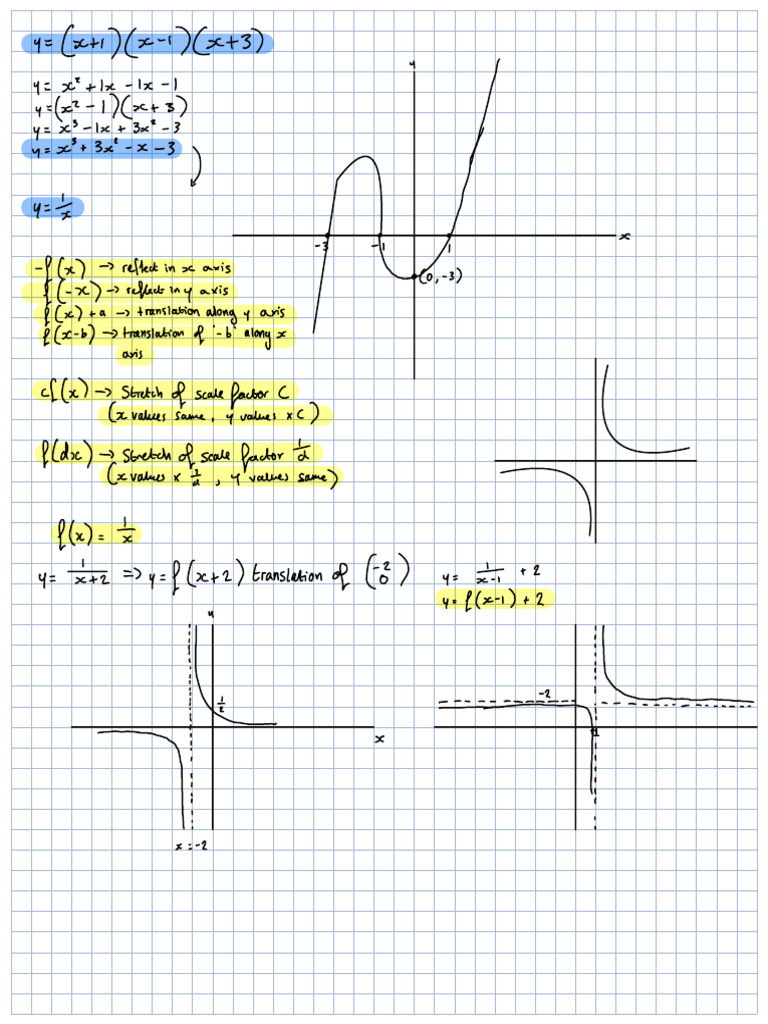 y = (x+1)(x-1)(x+3)
y = x² + 1x - 1x - 1
y = (x² - 1)(x + 3)
y = x³ - 1x + 3x² - 3
y = x³ + 3x² - x - 3
y = 1/x
y
x
-3
-1
1
(0, -3)
-f(x) → reflect in x axis
f(-x) → reflect in y axis
f(x) + a → translation along y axis
f(x-b) → translation of '-b' along x
axis
cf(x) → Stretch of scale factor C
(x values same, y values × C)
f(dx) → Stretch of scale factor 1/d
(x values × 1/d, y values same)
f(x) = 1/x
y = 1/(x+2) => y = f(x+2) translation of (-2 0)
y = 1/(x-1) + 2
y = f(x-1) + 2
y
1/2
x
x = -2
-2
1